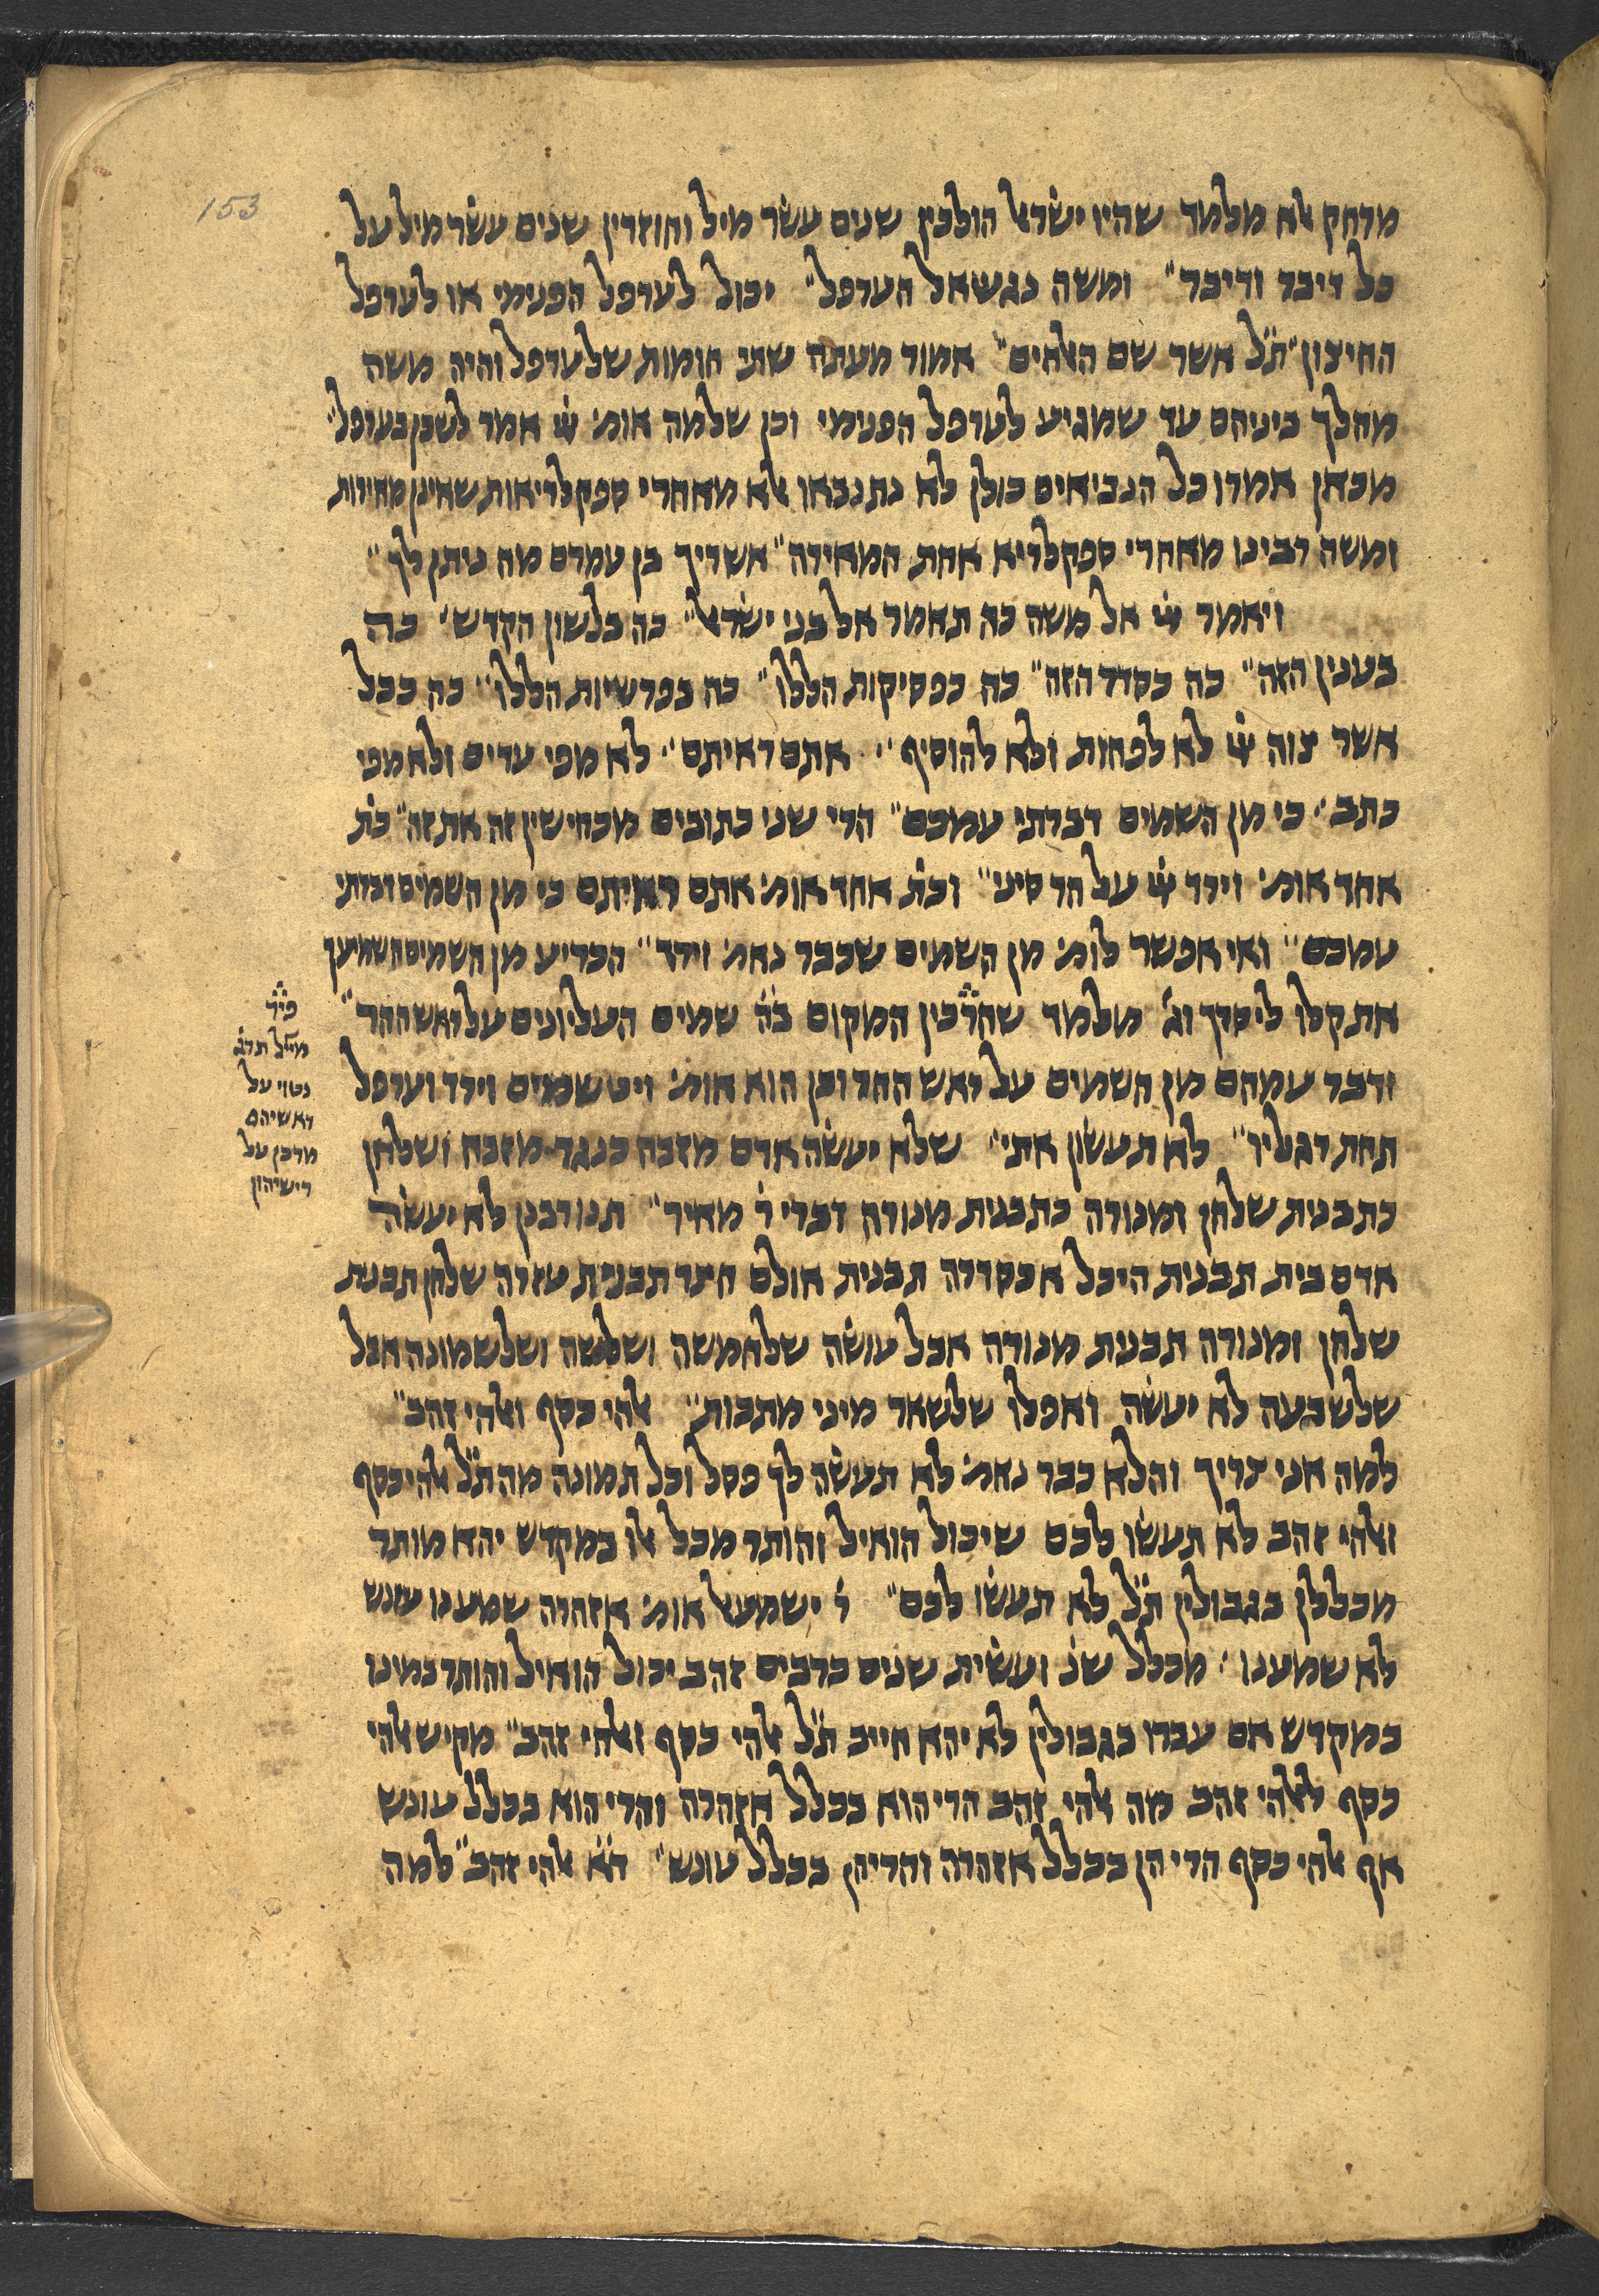 153
מרחק אלא מלמד שהיו ישראל הולכין שנים עשר מיל וחוזרין שנים עשר מיל על
כל דיבר ודיבר״ ומשה נגש אל הערפל״ יכול לערפל הפנימי או לערפל
החיצון״ ת״ל אשר שם האלהים״ אמור מעתה שתי חומות שלערפל והיה משה
מהלך ביניהם עד שמגיע לערפל הפנימי וכן שלמה אומ׳ יי אמר לשכן בערפל׳
מכאן אמרו כל הנביאים כולן לא נתנבאו אלא מאחרי ספקלריאות שאינן מאירות
ומשה רבינו מאחרי ספקלריא אחת המאירה״ אשריך בן עמרם מה ניתן לך״
ויאמר יי אל משה כה תאמר אל בני ישראל״ כה בלשון הקדש׳ כה
בענין הזה״ כה בסדר הזה״ כה בפסיקות הללו״ כה בפרשיות הללו״ כה ככל
אשר צוה יי לא לפחות ולא להוסיף״ אתם ראיתם״ לא מפי עדים ולא מפי
כתב׳ כי מן השמים דברתי עמכם״ הרי שני כתובים מכחישין זה את זה״ כת׳
אחד אומ׳ וירד יי על הר סיני״ וכת׳ אחד אומ׳ אתם ראיתם כי מן השמים דברתי
עמכם״ ואי אפשר לומ׳ מן השמים שכבר נאמ׳ וירד״ הכריע מן השמים השמיעך
את קלו ליסרך וג׳ מלמד שהרכין המקום ב״ה שמים העליונים על ראש ההר״
ודבר עמהם מן השמים על ראש ההר וכן הוא אומ׳ ויט שמים וירד וערפל
תחת רגליו״ לא תעשון אתי״ שלא יעשה אדם מזבח כנגד מזבח ושלחן
כתבנית שלחן ומנורה כתבנית מנורה דברי ר׳ מאיר״ תנו רבנן לא יעשה
אדם בית תבנית היכל אכסדרה תבנית אולם חצר תבנית עזרה שלחן תבנית
שלחן ומנורה תבנית מנורה אבל עושה שלחמשה ושלששה ושלשמונה אבל
שלשבעה לא יעשה ואפלו שלשאר מיני מתכות״ אלהי כסף ואלהי זהב״
למה אני צריך והלא כבר נאמ׳ לא תעשה לך פסל וכל תמונה מה ת״ל אלהי כסף
ואלהי זהב לא תעשו לכם שיכול הואיל והותר מכלל אלו במקדש יהא מותר
מכללן בגבולין ת״ל לא תעשו לכם״ ר׳ ישמעאל אומ׳ אזהרה שמענו עונש
לא שמענו׳ מכלל שנ׳ ועשית שנים כרבים זהב יכול הואיל והותר כמינו
במקדש אם עברו בגבולין לא יהא חייב ת״ל אלהי כסף ואלהי זהב״ מקיש אלהי
כסף לאלהי זהב מה אלהי זהב הרי הוא בכלל אזהרה והרי הוא בכלל עונש
אף אלהי כסף הרי הן בכלל אזהרה והרי הן בכלל עונש״ ד״א אלהי זהב״ למה
פיר׳
נטוי על
ראשיהם
מרכן על
רישיהון